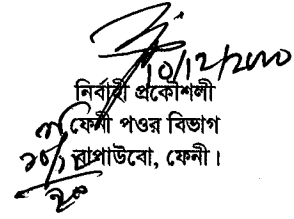 10/12/2020
নির্বাহী প্রকৌশলী
ফেনী পওর বিভাগ
বাপাউবো, ফেনী।